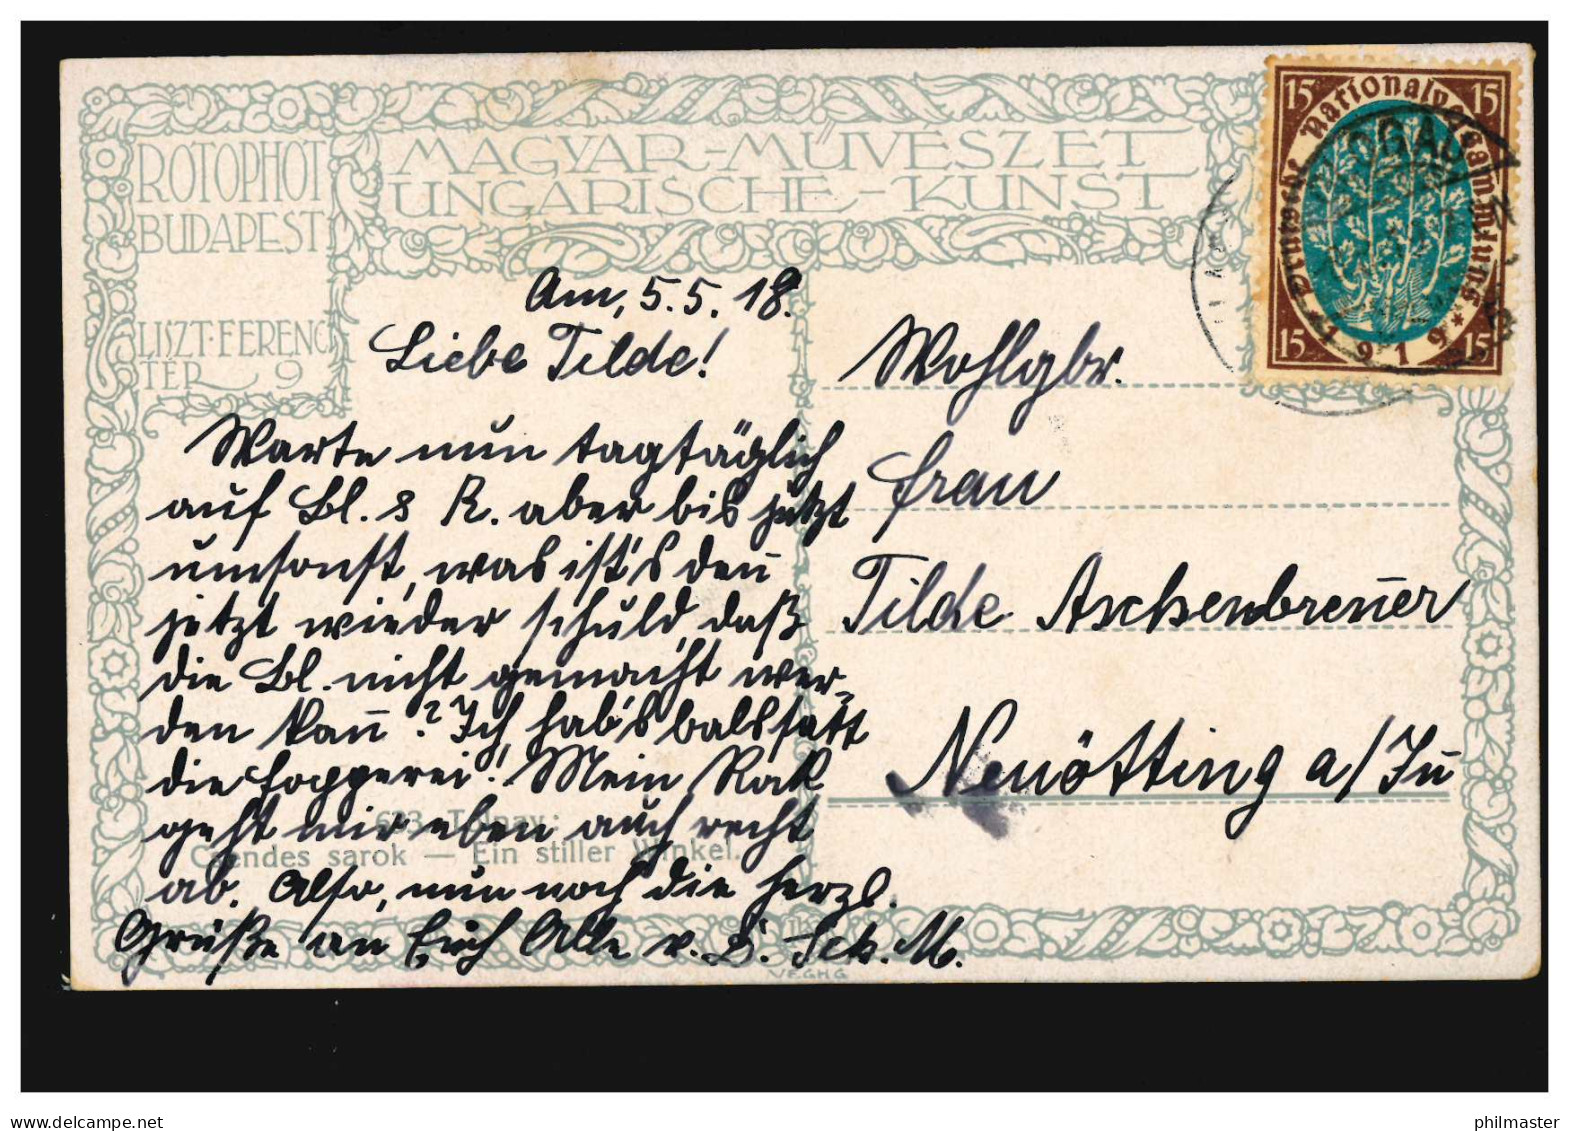 ROTOPHOT
BUDAPEST
LISZT·FERENC
TÉR 9
MAGYAR-MŰVÉSZET
UNGARISCHE-KUNST
15 15
Deutsche Nationalversammlung
* 1919 *
15 15
Am, 5.5.18.
Liebe Tilde!
Warte nun tagtäglich
auf Bl. & R. aber bis jetzt
umsonst, was ist's den̄
jetzt wieder schuld, daß
die Bl. nicht gemacht wer-
den kan̄? Ich hab's bald satt
die Fopperei! Mein
geht mir eben auch recht
ab. Also, nun noch die herzl.
Grüße an Euch Alle v. D. Sch. M.
Wohlgbr.
Frau
Tilde Aschenbren̄er
Neuötting a/In̄
673. Tolnay:
Csendes sarok — Ein stiller Winkel.
VEGHG
delcampe.net
philmaster